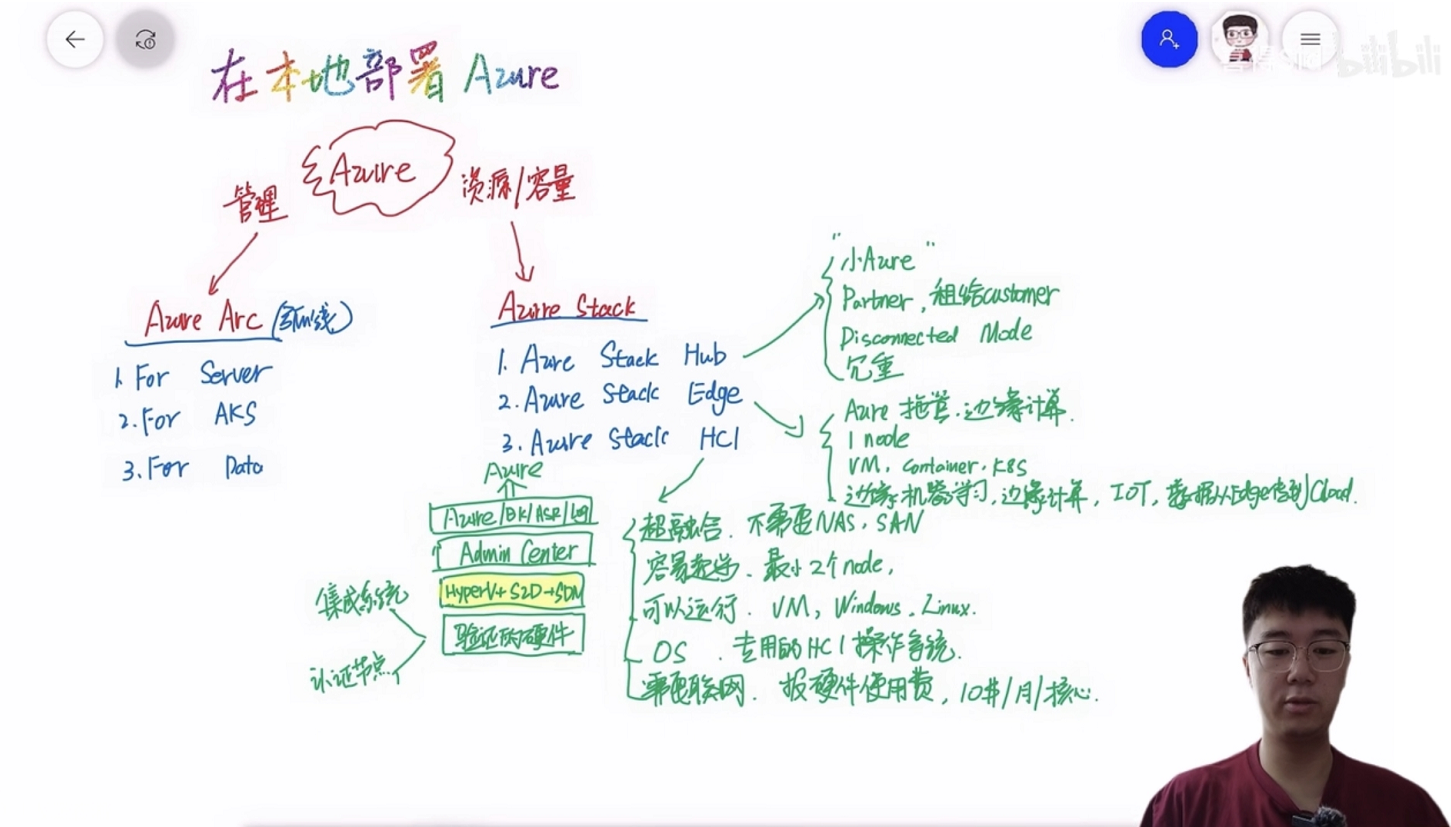 在本地部署 Azure
bilibili
Azure
管理
资源/容量
Azure Arc
1. For Server
2. For AKS
3. For Data
Azure Stack
1. Azure Stack Hub
2. Azure Stack Edge
3. Azure Stack HCI
"小Azure"
Partner, 租给customer
Disconnected Mode
冗重
Azure 拖管.边缘计算.
1 node
VM, Container, K8S
边缘机器学习, 边缘计算, IOT, 数据从Edge传到Cloud.
Azure
Azure/BK/ASR/Log
Admin Center
HyperV+S2D+SDN
验证的硬件
集成系统
认证节点
超融合. 不需要NAS, SAN
容易起步. 最小2个node,
可以运行. VM, Windows, Linux.
OS . 专用的HCI操作系统.
需要联网. 按硬件使用费, 10$/月/核心.